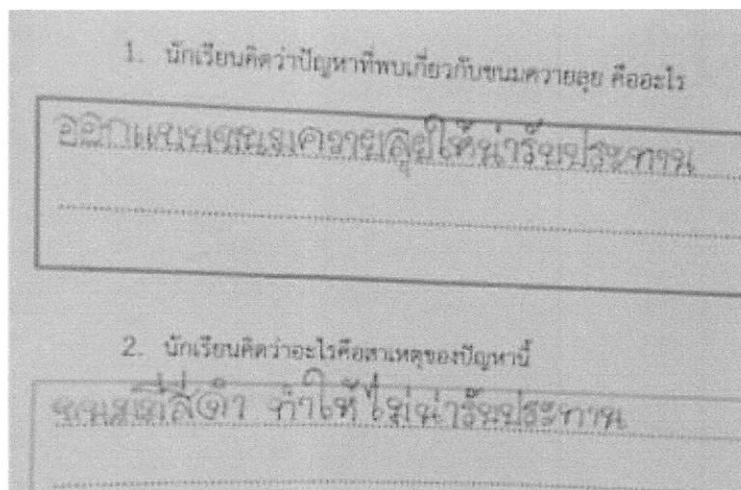 1. นักเรียนคิดว่าปัญหาที่พบเกี่ยวกับขนมควายลุย คืออะไร
ออกแบบขนมควายลุยให้น่ารับประทาน
2. นักเรียนคิดว่าอะไรคือสาเหตุของปัญหานี้
ขนมมีสีดำ ทำให้ไม่น่ารับประทาน